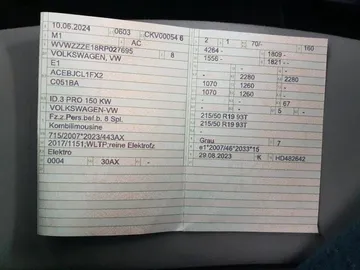 10.06.2024 0603 CKV00054 6
M1 AC
WVWZZZE18RP027695 8
VOLKSWAGEN, VW
E1
ACEBJCL1FX2
C051BA
ID.3 PRO 150 KW
VOLKSWAGEN-VW
Fz.z.Pers.bef.b. 8 Spl.
Kombilimousine
715/2007*2023/443AX
2017/1151;WLTP;reine Elektrofz
Elektro
0004 30AX -
2 1 70/- 160
4264 - 1809 -
1556 - 1821 -
- - -
- 2280 2280
1070 1260 -
1070 1260 -
- - 67
- 5 -
215/50 R19 93T
215/50 R19 93T
Grau 7
e1*2007/46*2033*15
29.08.2023 K HD482642